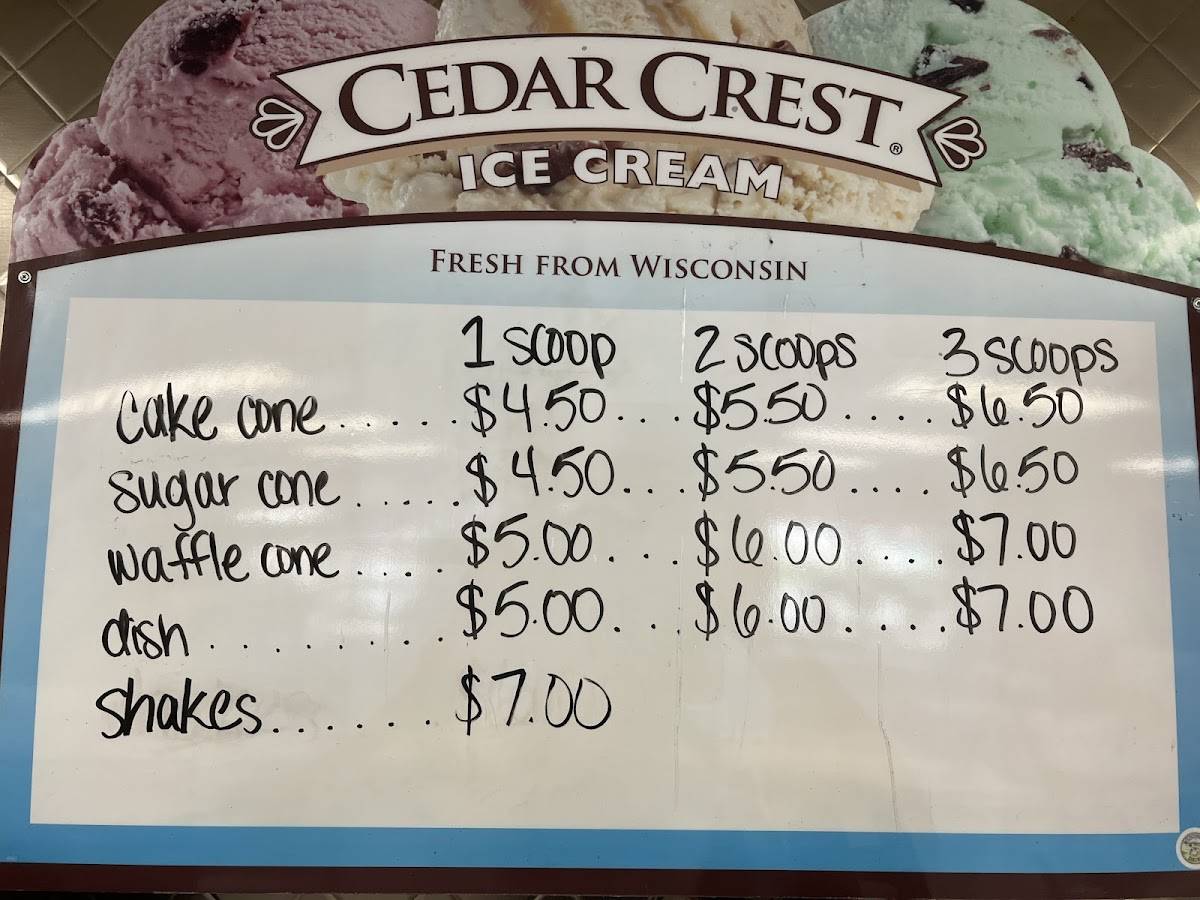 CEDAR CREST®
ICE CREAM
FRESH FROM WISCONSIN
1 scoop 2 scoops 3 scoops
cake cone.....$4.50...$5.50.....$6.50
sugar cone.....$4.50...$5.50....$6.50
waffle cone....$5.00...$6.00....$7.00
dish.........$5.00...$6.00....$7.00
shakes......$7.00